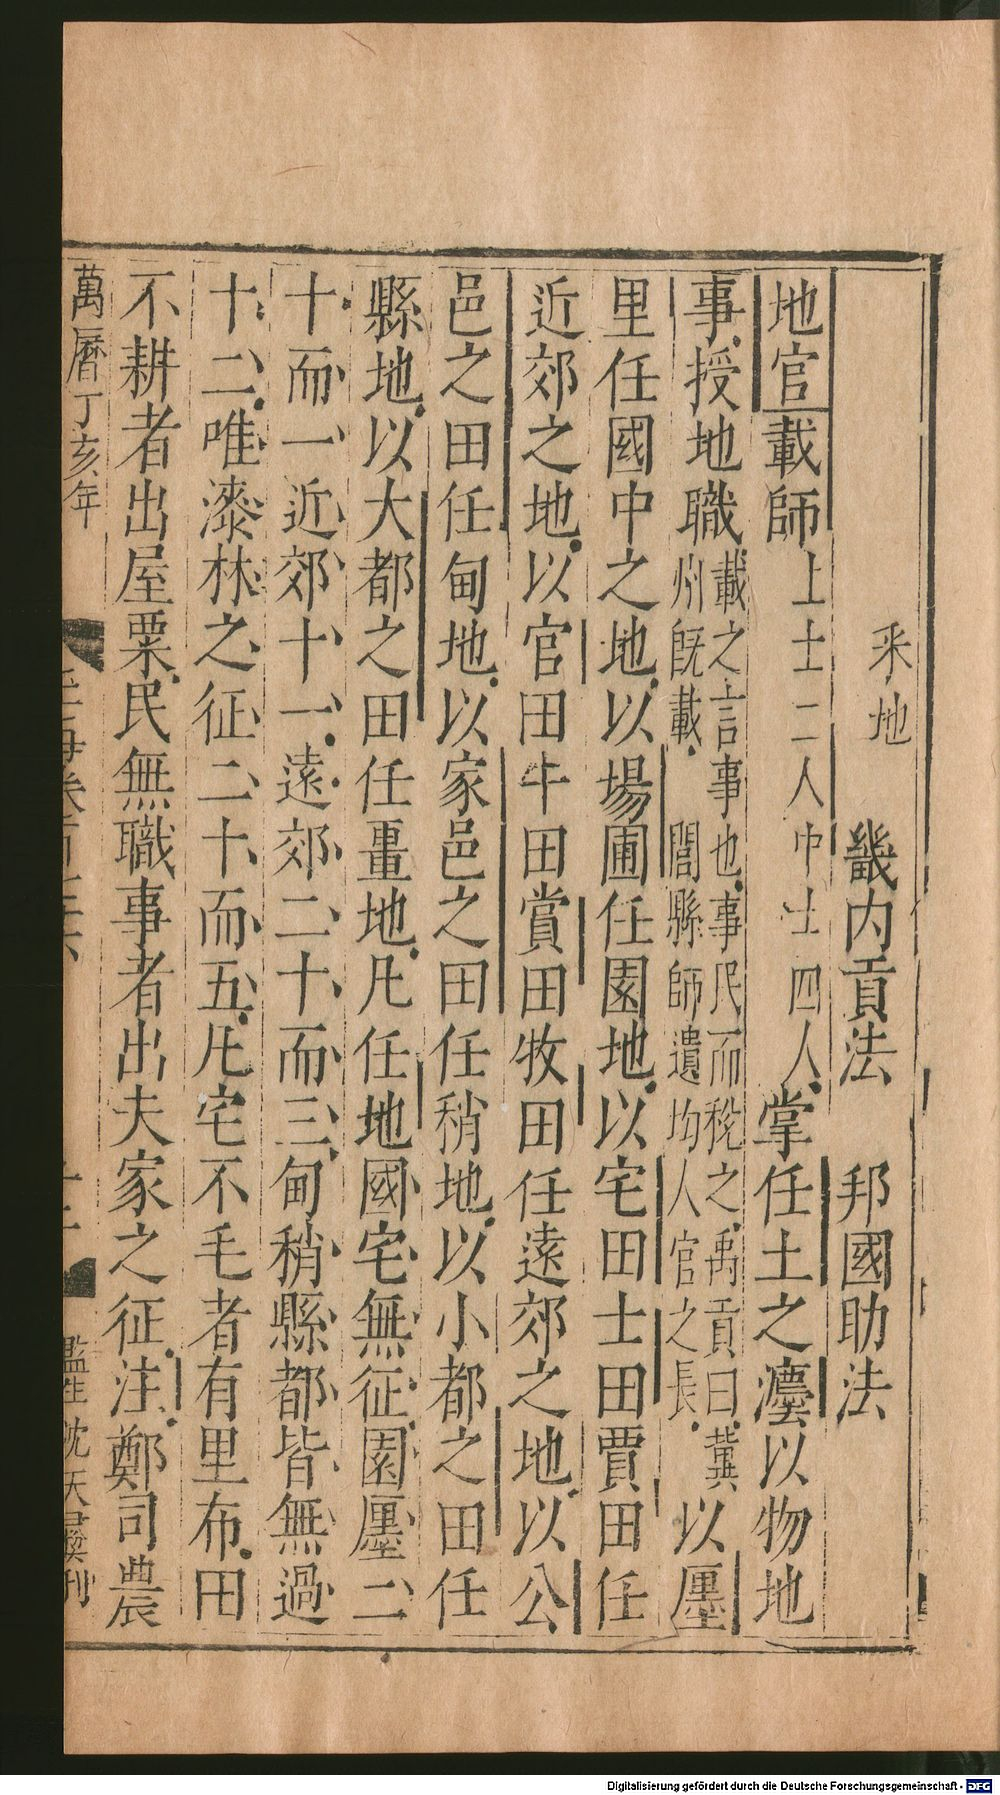 采地　畿内貢法　邦國助法
地官載師上士二人中士四人掌任土之灋以物地
事授地職載之言事也事民而稅之禹貢曰冀
州旣載　閭縣師遺均人官之長以廛
里任國中之地以場圃任園地以宅田士田賈田任
近郊之地以官田牛田賞田牧田任遠郊之地以公
邑之田任甸地以家邑之田任稍地以小都之田任
縣地以大都之田任畺地凡任地國宅無征園廛二
十而一近郊十一遠郊二十而三甸稍縣都皆無過
十二唯漆林之征二十而五凡宅不毛者有里布田
不耕者出屋粟民無職事者出夫家之征注鄭司農
萬曆丁亥年
監生沈天刊
Digitalisierung gefördert durch die Deutsche Forschungsgemeinschaft - DFG